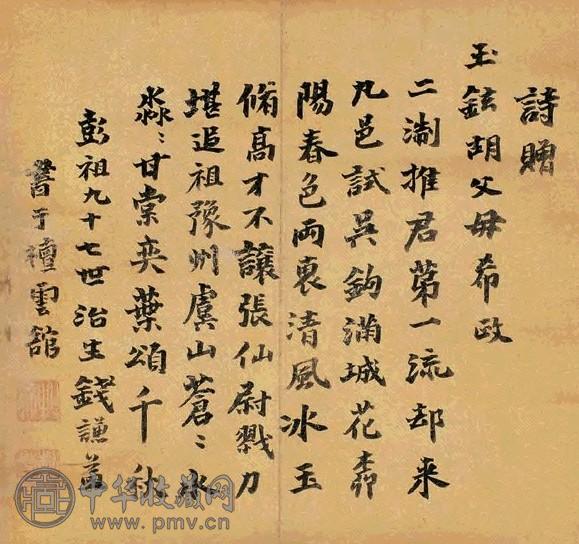 詩贈
玉鉉胡父母希政
二淛推君第一流却来
九邑試吳鉤滿城花
陽春色兩裏清風冰玉
脩高才不讓張仙尉戮力
堪追祖豫州虞山蒼〻水
淼〻甘棠奕葉頌千秋
彭祖九十七世治生錢謙益
書于檀雲館
中华收藏网
www.pmv.cn